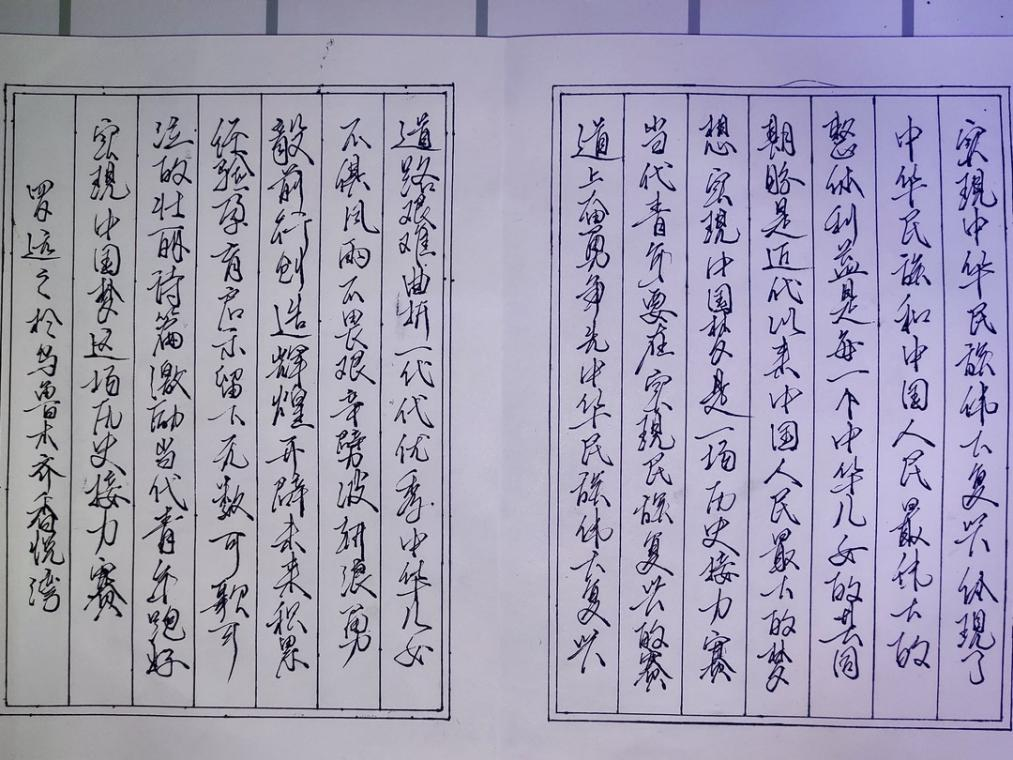 实现中华民族伟大复兴体现了
中华民族和中国人民最伟大的
整体利益是每一个中华儿女的共同
期盼是近代以来中国人民最大的梦
想实现中国梦是一场历史接力赛
当代青年要在实现民族复兴的赛
道上奋勇争先中华民族伟大复兴
道路艰难曲折一代代优秀中华儿女
不惧风雨不畏艰辛劈波斩浪勇
毅前行创造辉煌开辟未来积累
经验孕育启示留下无数可歌可
泣的壮丽诗篇激励当代青年跑好
实现中国梦这场历史接力赛
罗远之于乌鲁木齐香悦湾